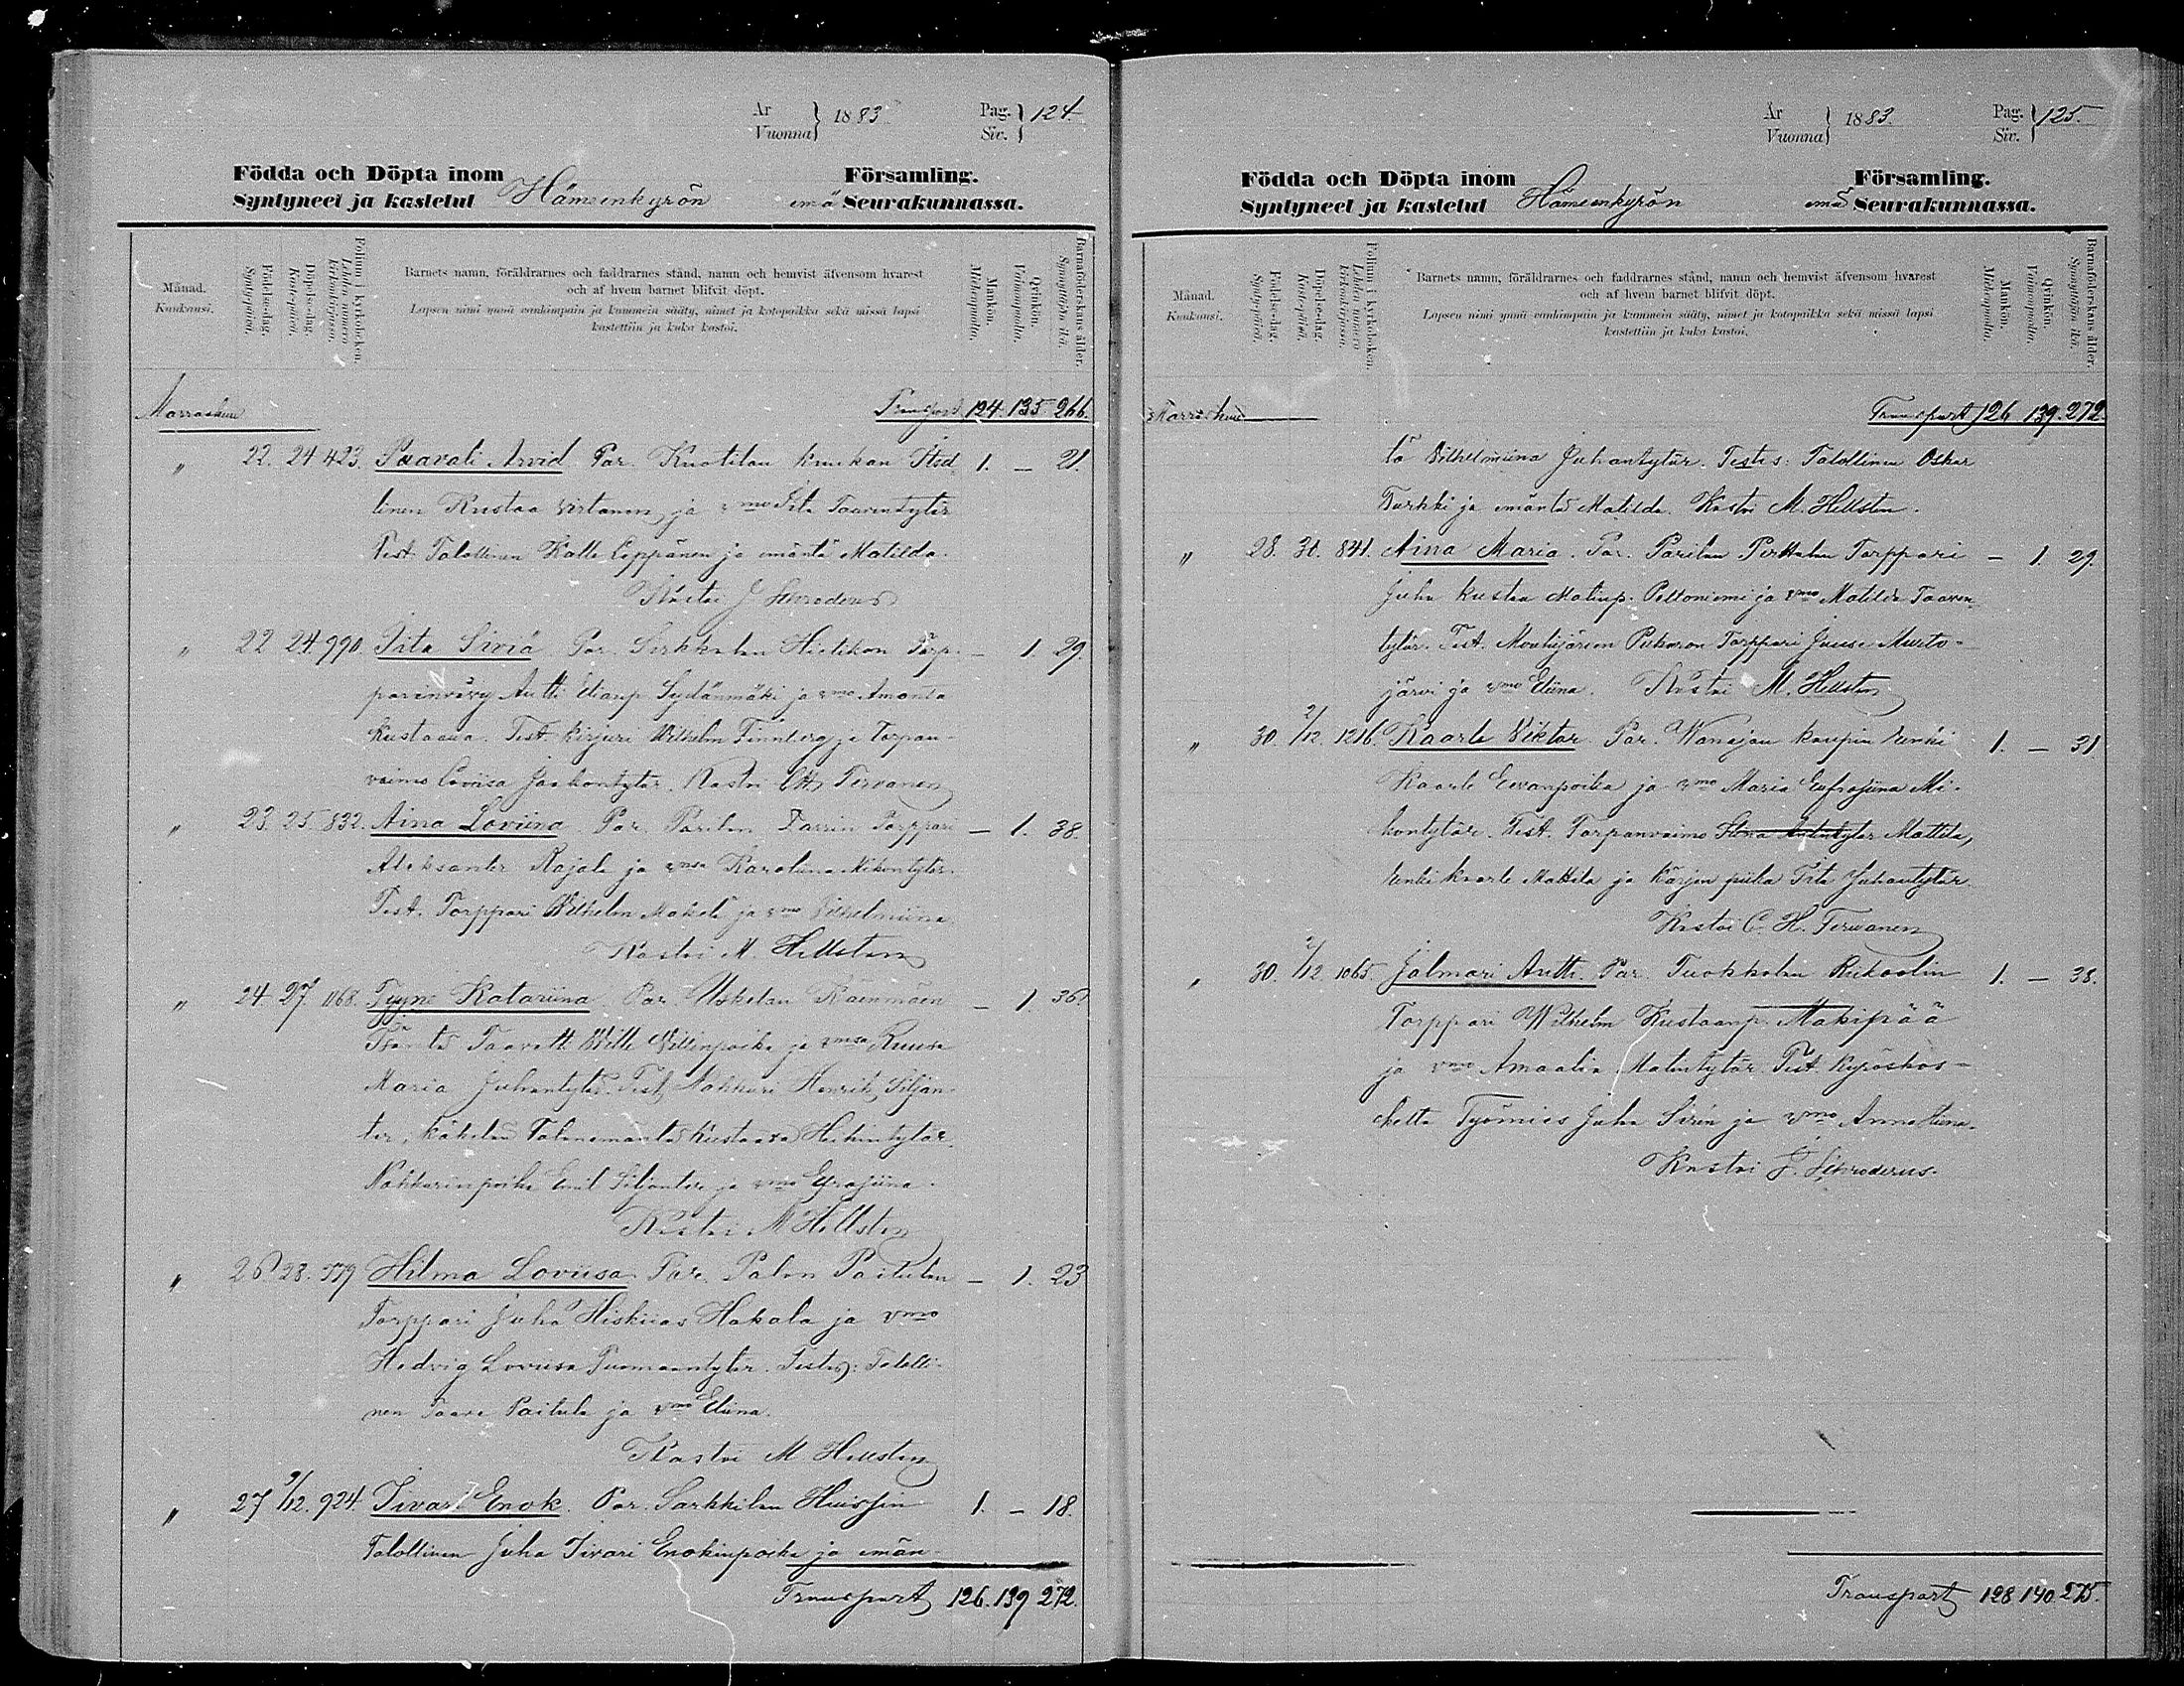 År
Vuonna } 1883
Pag.
Siv. } 124.
Födda och Döpta inom Församling.
Syntyneet ja kastetut Hämeenkyrön emä Seurakunnassa.
Månad.
Kuukausi.
Födelse-dag.
Syntypäivä.
Döpelse-dag.
Kastepäivä.
Folium i kyrkoboken.
Lehden numero kirkonkirjassa.
Barnets namn, föräldrarnes och faddrarnes stånd, namn och hemvist äfvensom hvarest
och af hvem barnet blifvit döpt.
Lapsen nimi ynnä vanhimpain ja kummein sääty, nimet ja kotopaikka sekä missä lapsi
kastettiin ja kuka kastoi.
Mankön.
Miehenpuolta.
Qvinkön.
Vaimonpuolta.
Barnaföderskans ålder.
Synnyttäjän ikä.
Marraskuu Transport 124. 135. 266.
" 22. 24 423. Paavali Arvid Par. Kuotilan 1. — 21.
linen Kustaa Virtanen ja vmo Iita Taaventytär
Test. Talollinen Kalle Leppänen ja emäntä Matilda.
Kastoi J. Schroderus
" 22 24 990. Iita Siviä Par. Sirkkalan Hietikon Torp- — 1. 29.
parinvävy Antti Sydänmäki ja vmo Amanta
Kustaava. Test. Kirjuri Wilhelm Finnberg ja Torpan-
vaimo Loviisa Jaakontytär. Kastoi Tervanen
" 23. 25. 832. Aina Loviina. Par. Parilan Torppari — 1. 38.
Aleksanter Rajala ja vmsa Karoliina Mikontytär.
Test. Torppari Wilhelm Makelä ja vmo Vilhelmiina
Kastoi M. Hellsten
" 24 27 1068. Tyyne Katariina. Par. Uskelan — 1. 36.
Taavetti Wille Villenpoika ja vmsa Ruusa
Maria Juhantytär. Test. Nahkuri Henrik Siljan-
ter, Talonemäntä Kustaava Heikintytär,
Nahkurinpoika Emil Siljanter ja vmo Efrasiina.
Kastoi M Hellsten
" 26 28. 779 Hilma Loviisa Par. Palon Paitulan — 1. 23
Torppari Juha Hiskias Hakala ja vmo
Hedvig Loviisa Tuomaantytär. Testes: Talolli-
nen Taave Paitula ja vmo Eliina.
Kastoi M. Hellsten
" 27 9/12. 924. Iivari Enok. Par. Sarkkilan 1. — 18.
Talollinen Juha Iivari Enokinpoika ja emän-
Transport 126. 139 272.
År
Vuonna } 1883.
Pag.
Siv. } 125.
Födda och Döpta inom Församling.
Syntyneet ja kastetut Hämeenkyrön emä Seurakunnassa.
Månad.
Kuukausi.
Födelse-dag.
Syntypäivä.
Döpelse-dag.
Kastepäivä.
Folium i kyrkoboken.
Lehden numero kirkonkirjassa.
Barnets namn, föräldrarnes och faddrarnes stånd, namn och hemvist äfvensom hvarest
och af hvem barnet blifvit döpt.
Lapsen nimi ynnä vanhimpain ja kummein sääty, nimet ja kotopaikka sekä missä lapsi
kastettiin ja kuka kastoi.
Mankön.
Miehenpuolta.
Qvinkön.
Vaimonpuolta.
Barnaföderskans ålder.
Synnyttäjän ikä.
Marraskuu Transport 126. 139. 272.
tä Vilhelmiina Juhantytär. Testes: Talollinen Oskar
Turkki ja emäntä Matilda. Kastoi M. Hellsten.
" 28. 30. 841. Aina Maria. Par. Parilan Perttulan Torppari — 1. 29.
Juha Kustaa Matinp. Peltoniemi ja vmo Matilda Taaven-
tytär. Test. Mouhijärven Torppari Juuse Murto-
järvi ja vmo Eliina. Kastoi M. Hellsten
" 30. 2/12. 1216. Kaarle Viktor. Par. Wanajan kaupin Renki 1. — 31.
Kaarle Eevanpoika ja vmo Maria Eufrosiina Mi-
kontytär. Test. Torpanvaimo Mattila,
Renki Kaarle Mattila ja Kärjen piika Iita Juhantytär
Kastoi C. H. Tervanen
" 30. 2/12. 1065. Jalmari Antti. Par. Tuokkolan 1. — 38.
Torppari Wilhelm Kustaanp. Makipää
ja vmo Amaalia Matintytär. Test. Kyröskos-
kelta Työmies Juha Sirén ja vmo Anna Stiina.
Kastoi J. Schroderus.
Transport 128 140. 275.